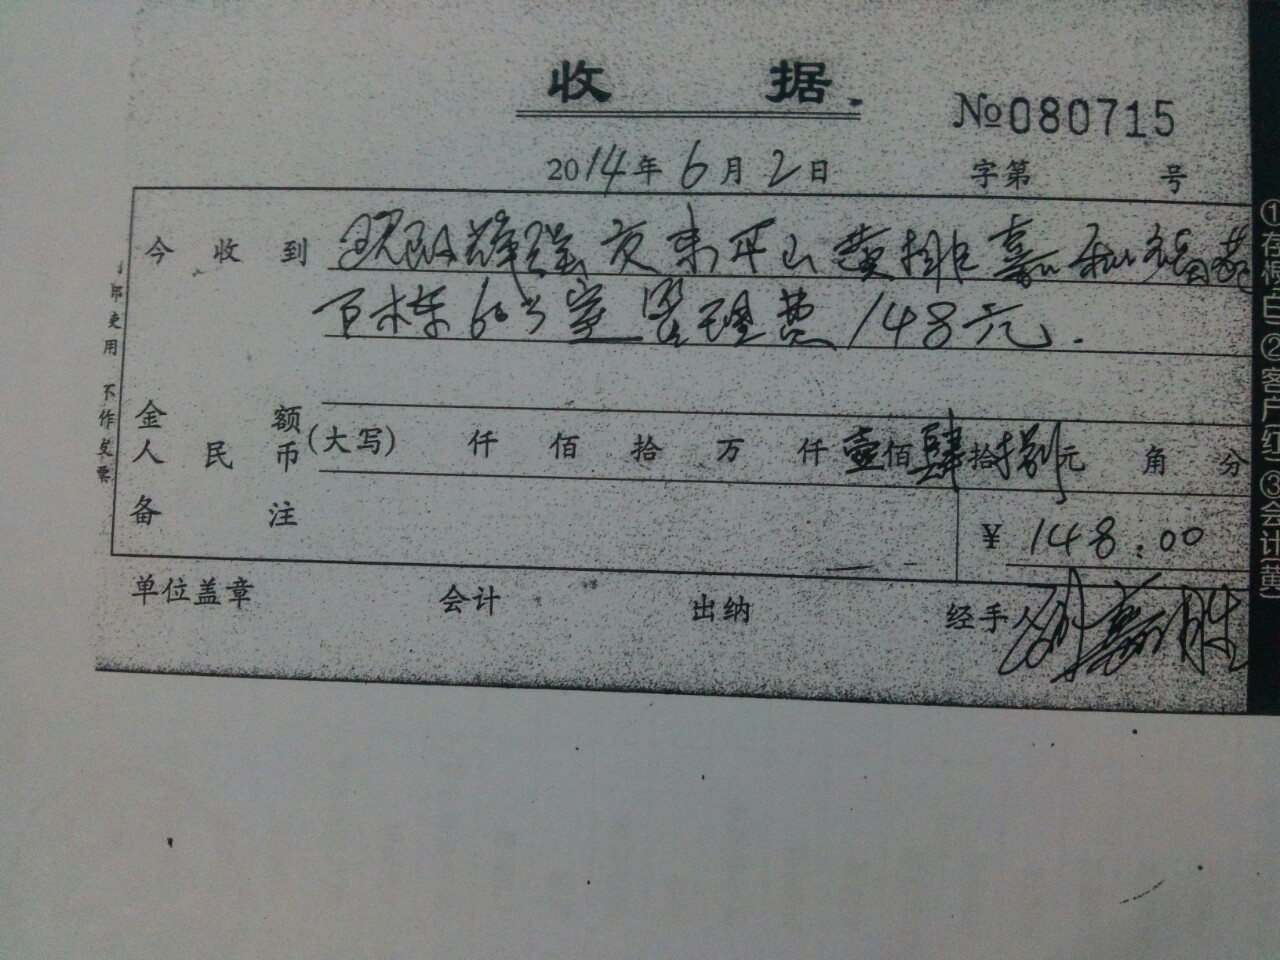 收 据.
№080715
2014年6月2日 字第 号
今收到 辉瑞交来平山黄排嘉和
百栋603室管理费148元.
金额
人民币(大写) 仟 佰 拾 万 仟 壹佰肆拾捌元 角 分
备注
¥ 148.00
单位盖章 会计 出纳 经手人
部使用 不作发票
①存根(白)②客户(红)③会计(黄)